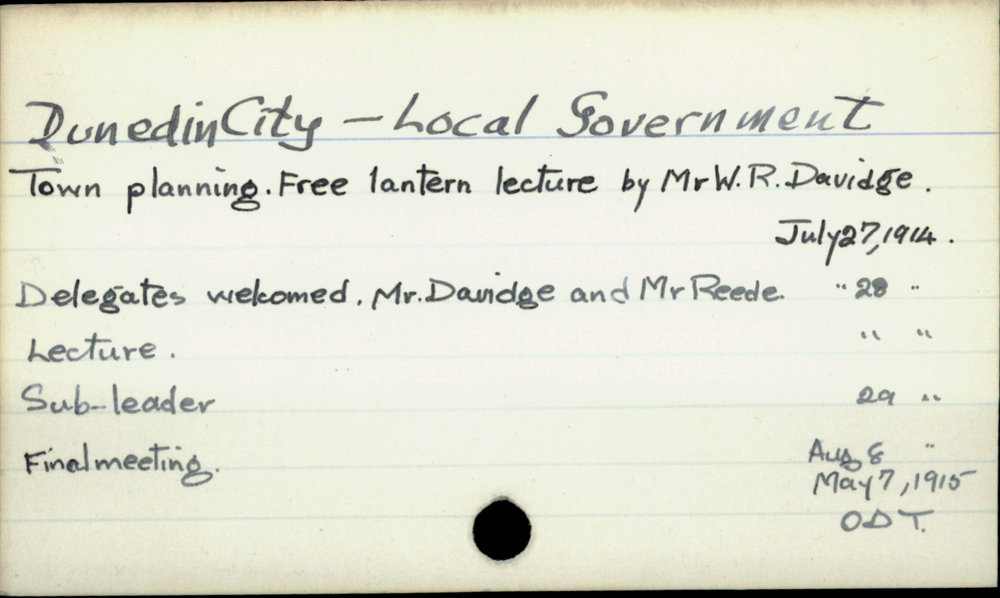 Dunedin City - Local Government
Town planning. Free lantern lecture by Mr W. R. Davidge.
July 27, 1914.
Delegates welcomed. Mr. Davidge and Mr Reede. " 28 "
Lecture. " "
Sub-leader 29 "
Final meeting. Aug 8 "
May 7, 1915
ODT.